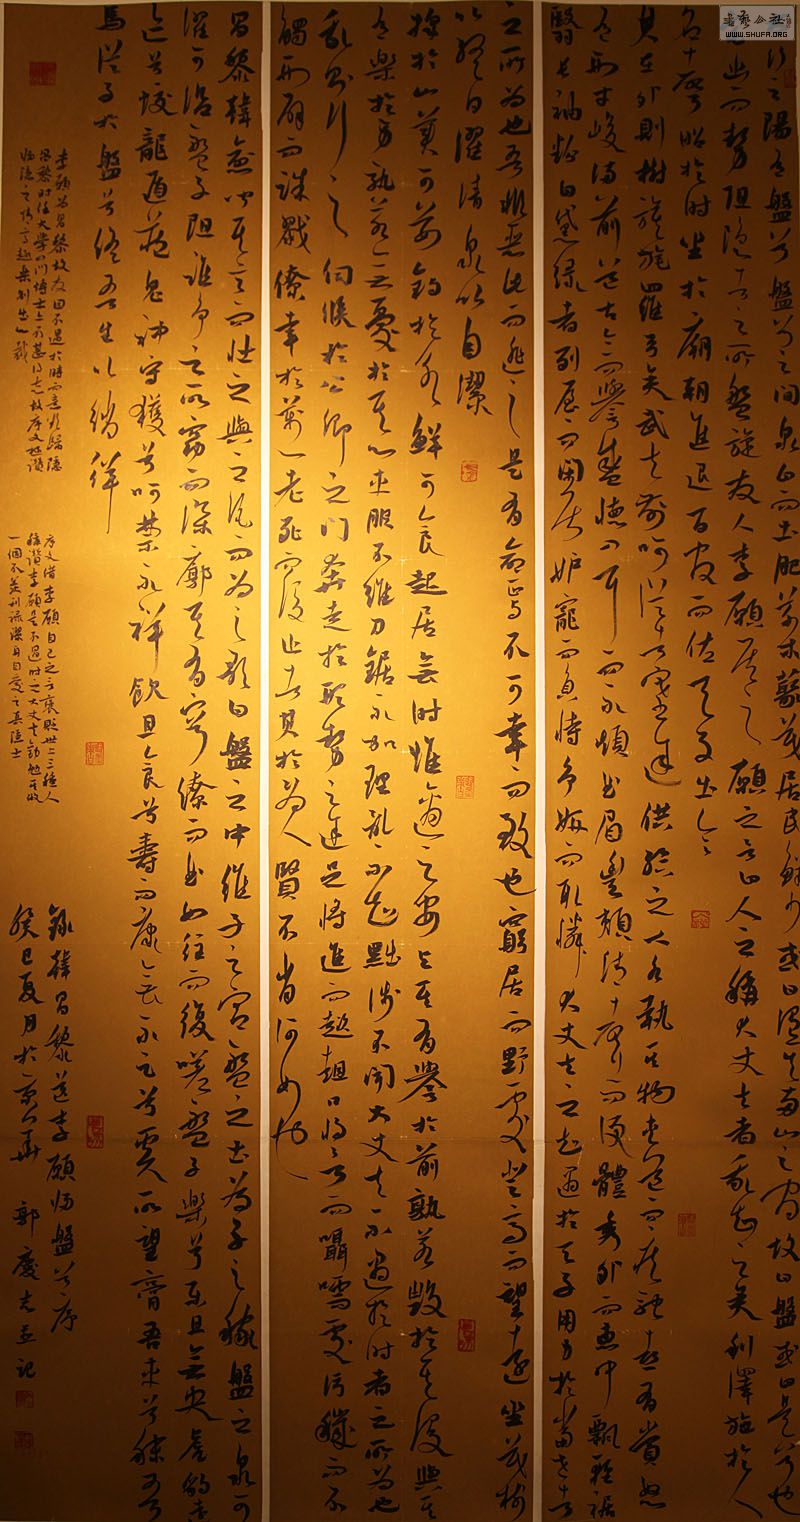 行之陽有盤谷盤谷之間泉甘而土肥草木藂茂居民鮮少或曰謂其兩山之間故曰盤或曰是谷也
幽而勢阻隱者之所盤旋友人李愿居之愿之言曰人之稱大丈夫者我知之矣利澤施於人
名聲昭於時坐於廟朝進退百官而佐天子出令
其在外則樹旗旄羅弓矢武夫前呵從者塞途供給之人各執其物夾道而疾馳喜有賞怒
有刑才峻滿前道古今而譽盛德入耳而不煩曲眉豐頰清聲而便體秀外而惠中飄輕裾
翳長袖粉白黛綠者列屋而閑居妒寵而負恃爭妍而取憐大丈夫之知遇於天子用力於當世者
之所為也吾非惡此而逃之是有命焉不可幸而致也窮居而野處登高而望遠坐茂樹
以終日濯清泉以自潔
採於山美可茹釣於水鮮可食起居無時惟適之安與其有譽於前孰若無毀於其後與其
有樂於身孰若無憂於其心車服不維刀鋸不加理亂不知黜陟不聞大丈夫不遇於時者之所為也
我則行之伺候於公卿之門奔走於形勢之途足將進而趑趄口將言而囁嚅處污穢而不
觸刑辟而誅戮僥幸於萬一老死而後止者其於為人賢不肖何如也
昌黎韓愈聞其言而壯之與之酒而為之歌曰盤之中維子之宮盤之土為子之稼盤之泉可
濯可沿盤之阻誰爭子所窈而深廓其有容繚而曲如往而復嗟盤之樂兮樂且無央虎豹遠
跡兮蛟龍遁藏鬼神守護兮呵禁不祥飲且食兮壽而康無不足兮奚所望膏吾車兮秣吾
馬從子於盤兮終吾生以徜徉
李願為昌黎故友因不遇於時而意欲歸隱
昌黎時任大學四門博士亦甚不得志故序文極讚
歸隱之情
序文借李願自己之言褒貶世上三種人
極讚李願是不遇時之大丈夫
一個不羨利祿潔身自愛之真隱士
錄韓昌黎送李願歸盤谷序
癸巳夏月於京華 郭慶志並記
書藝公社
WWW.SHUFA.ORG